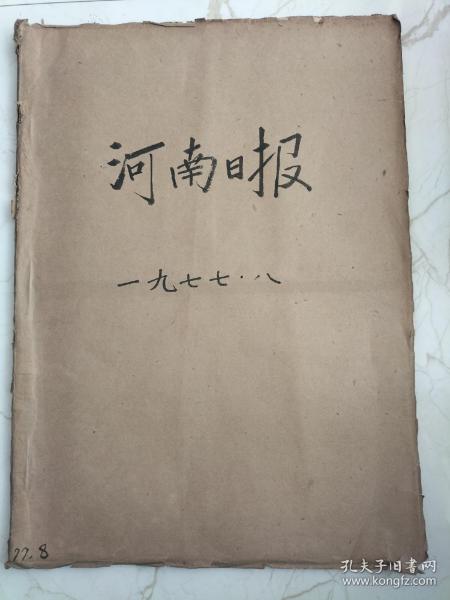 河南日报
一九七七·八
77.8
孔夫子旧书网
www.kongfz.com